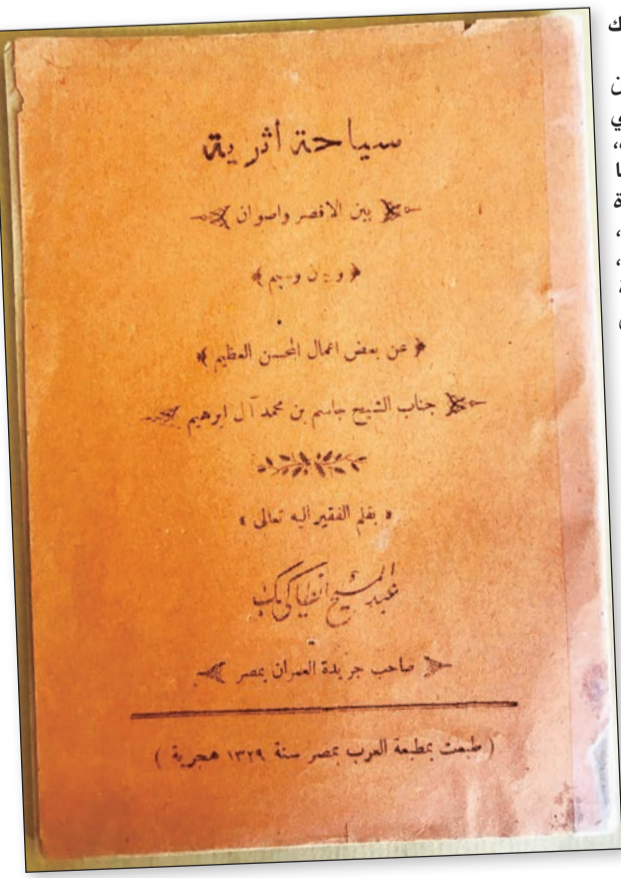 سياحة أثرية
بين الاقصر واصوان
﴿ وبين وسيم ﴾
﴿ عن بعض اعمال المحسن العظيم ﴾
جناب الشيخ جاسم بن محمد آل ابرهيم
« بقلم الفقير اليه تعالى »
عبد المسيح انطاكي بك
صاحب جريدة العمران بمصر
( طبعت بمطبعة العرب بمصر سنة ١٣٢٩ هجرية )